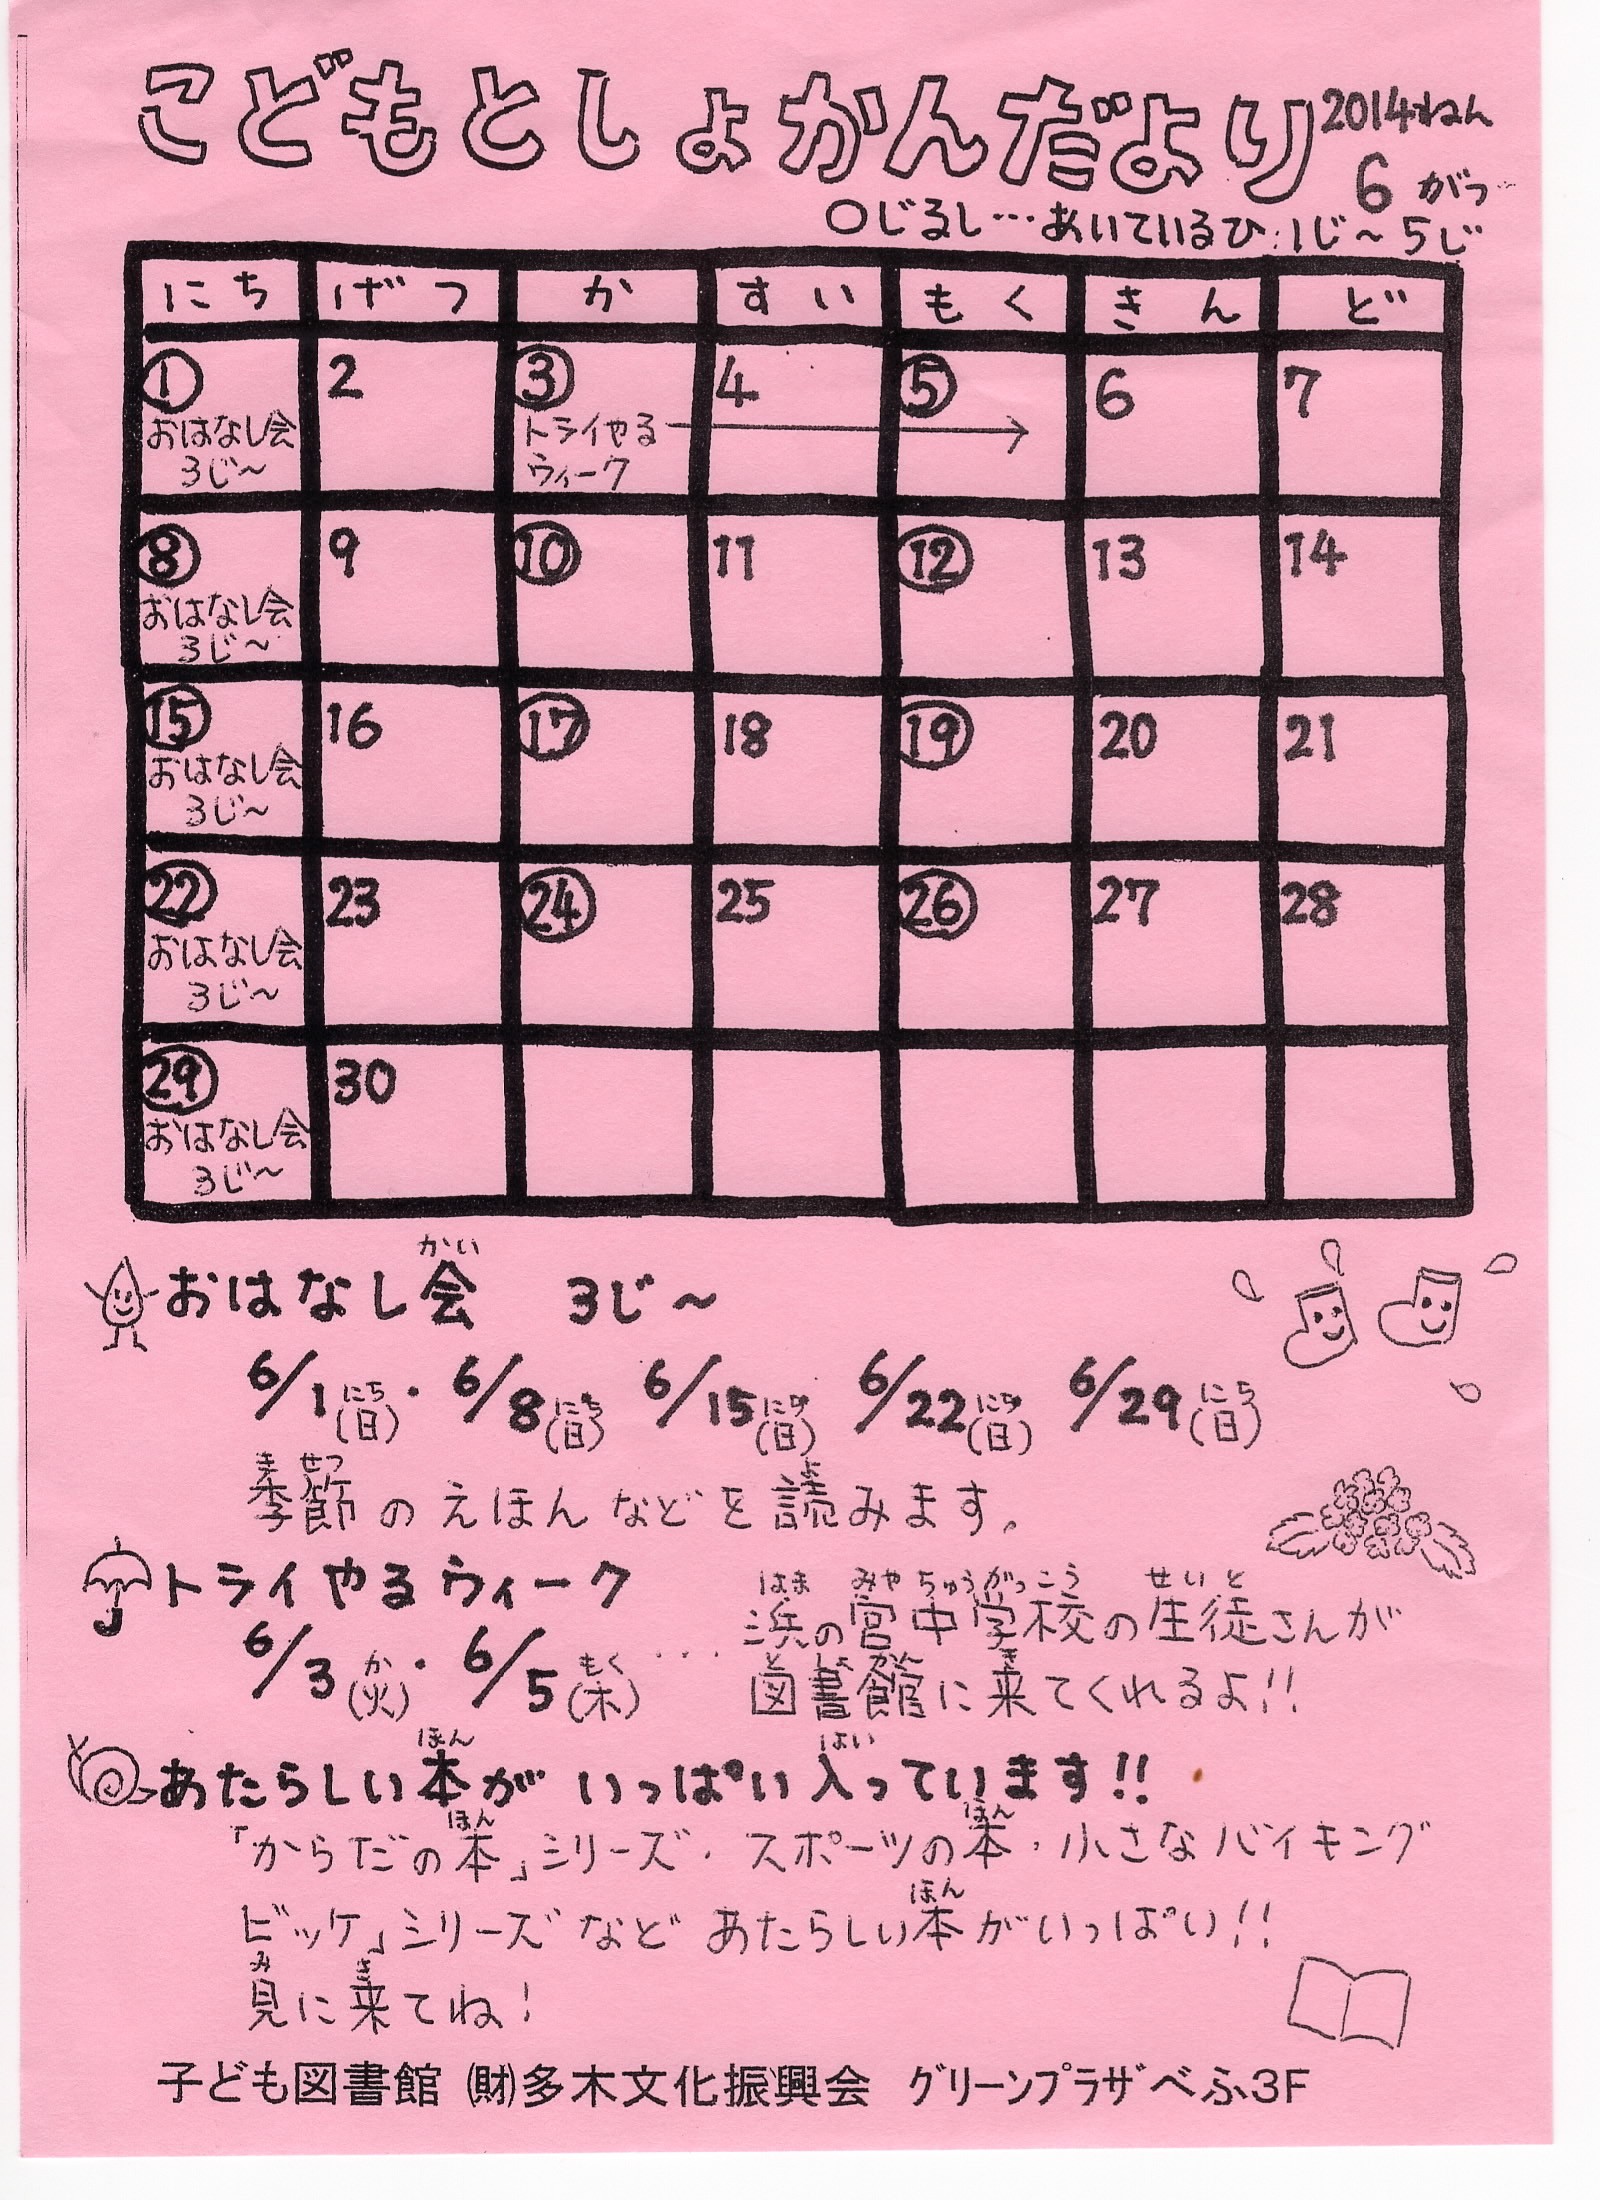 こどもとしょかんだより 2014ねん
6がつ
○じるし…あいているひ:1じ～5じ
にち げつ か すい もく きん ど
① 2 ③ 4 ⑤ 6 7
おはなし会 トライやる
3じ～ ウィーク
⑧ 9 ⑩ 11 ⑫ 13 14
おはなし会
3じ～
⑮ 16 ⑰ 18 ⑲ 20 21
おはなし会
3じ～
㉒ 23 ㉔ 25 ㉖ 27 28
おはなし会
3じ～
㉙ 30
おはなし会
3じ～
かい
おはなし会 3じ～
にち にち にち にち にち
6/1(日)・6/8(日) 6/15(日) 6/22(日) 6/29(日)
き せつ よ
季節のえほんなどを読みます。
トライやるウィーク
はま みや ちゅう がっこう せいと
浜の宮中学校の生徒さんが
か もく
6/3(火)・6/5(木)…
と しょ かん き
図書館に来てくれるよ!!
ほん はい
あたらしい本がいっぱい入っています!!
ほん ほん
「からだの本」シリーズ・スポーツの本・小さなバイキング
ほん
ビッケ」シリーズなどあたらしい本がいっぱい!!
み き
見に来てね!
子ども図書館 ㈶多木文化振興会 グリーンプラザべふ3F